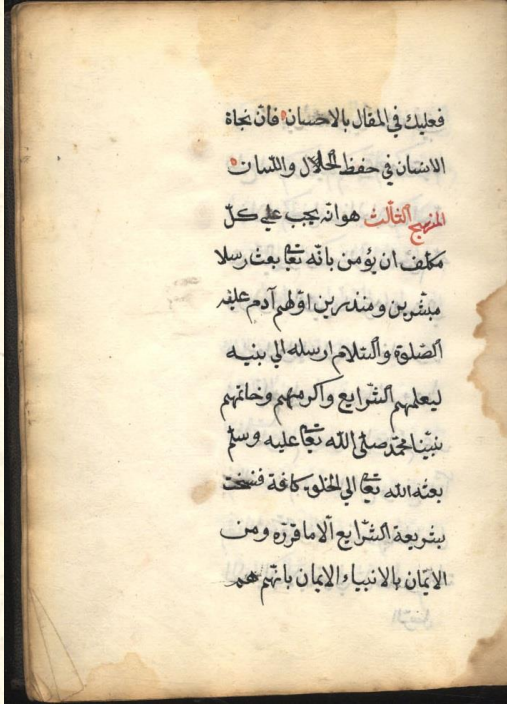 فعليك في المقال بالاحسان فان نجاة
الانسان في حفظ الحلال واللسان
المنهج الثالث هو انه يجب على كلّ
مكلف ان يؤمن بانه تعا بعث رسلا
مبشرين ومنذرين اوّلهم آدم عليه
الصّلوة والسّلام ارسله الي بنيه
ليعلمهم الشّرايع واكرمهم وخاتمهم
نبيّنا محمّد صلّى الله تعا عليه وسلّم
بعثه الله تعا الي الخلق كافة فنسخت
بشريعة الشّرايع الاما قرّره ومن
الايمان بالانبياء الايمان بانهم هم
الرسل